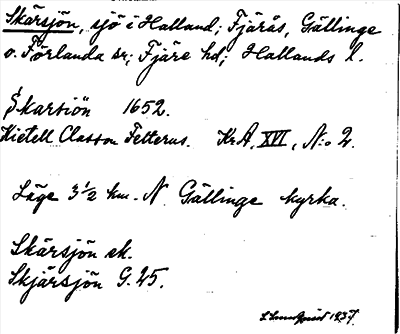 Skärsjön, sjö i Halland; Fjärås, Gällinge
o. Förlanda sr; Fjäre hd; Hallands l.
Skarsiön 1652.
Kietell Classon Felterus. Kr.A, XVI, N:o 2.
Läge 3 ½ km. N. Gällinge kyrka.
Skärsjön ek.
Skjärsjön G. 45.
1937.